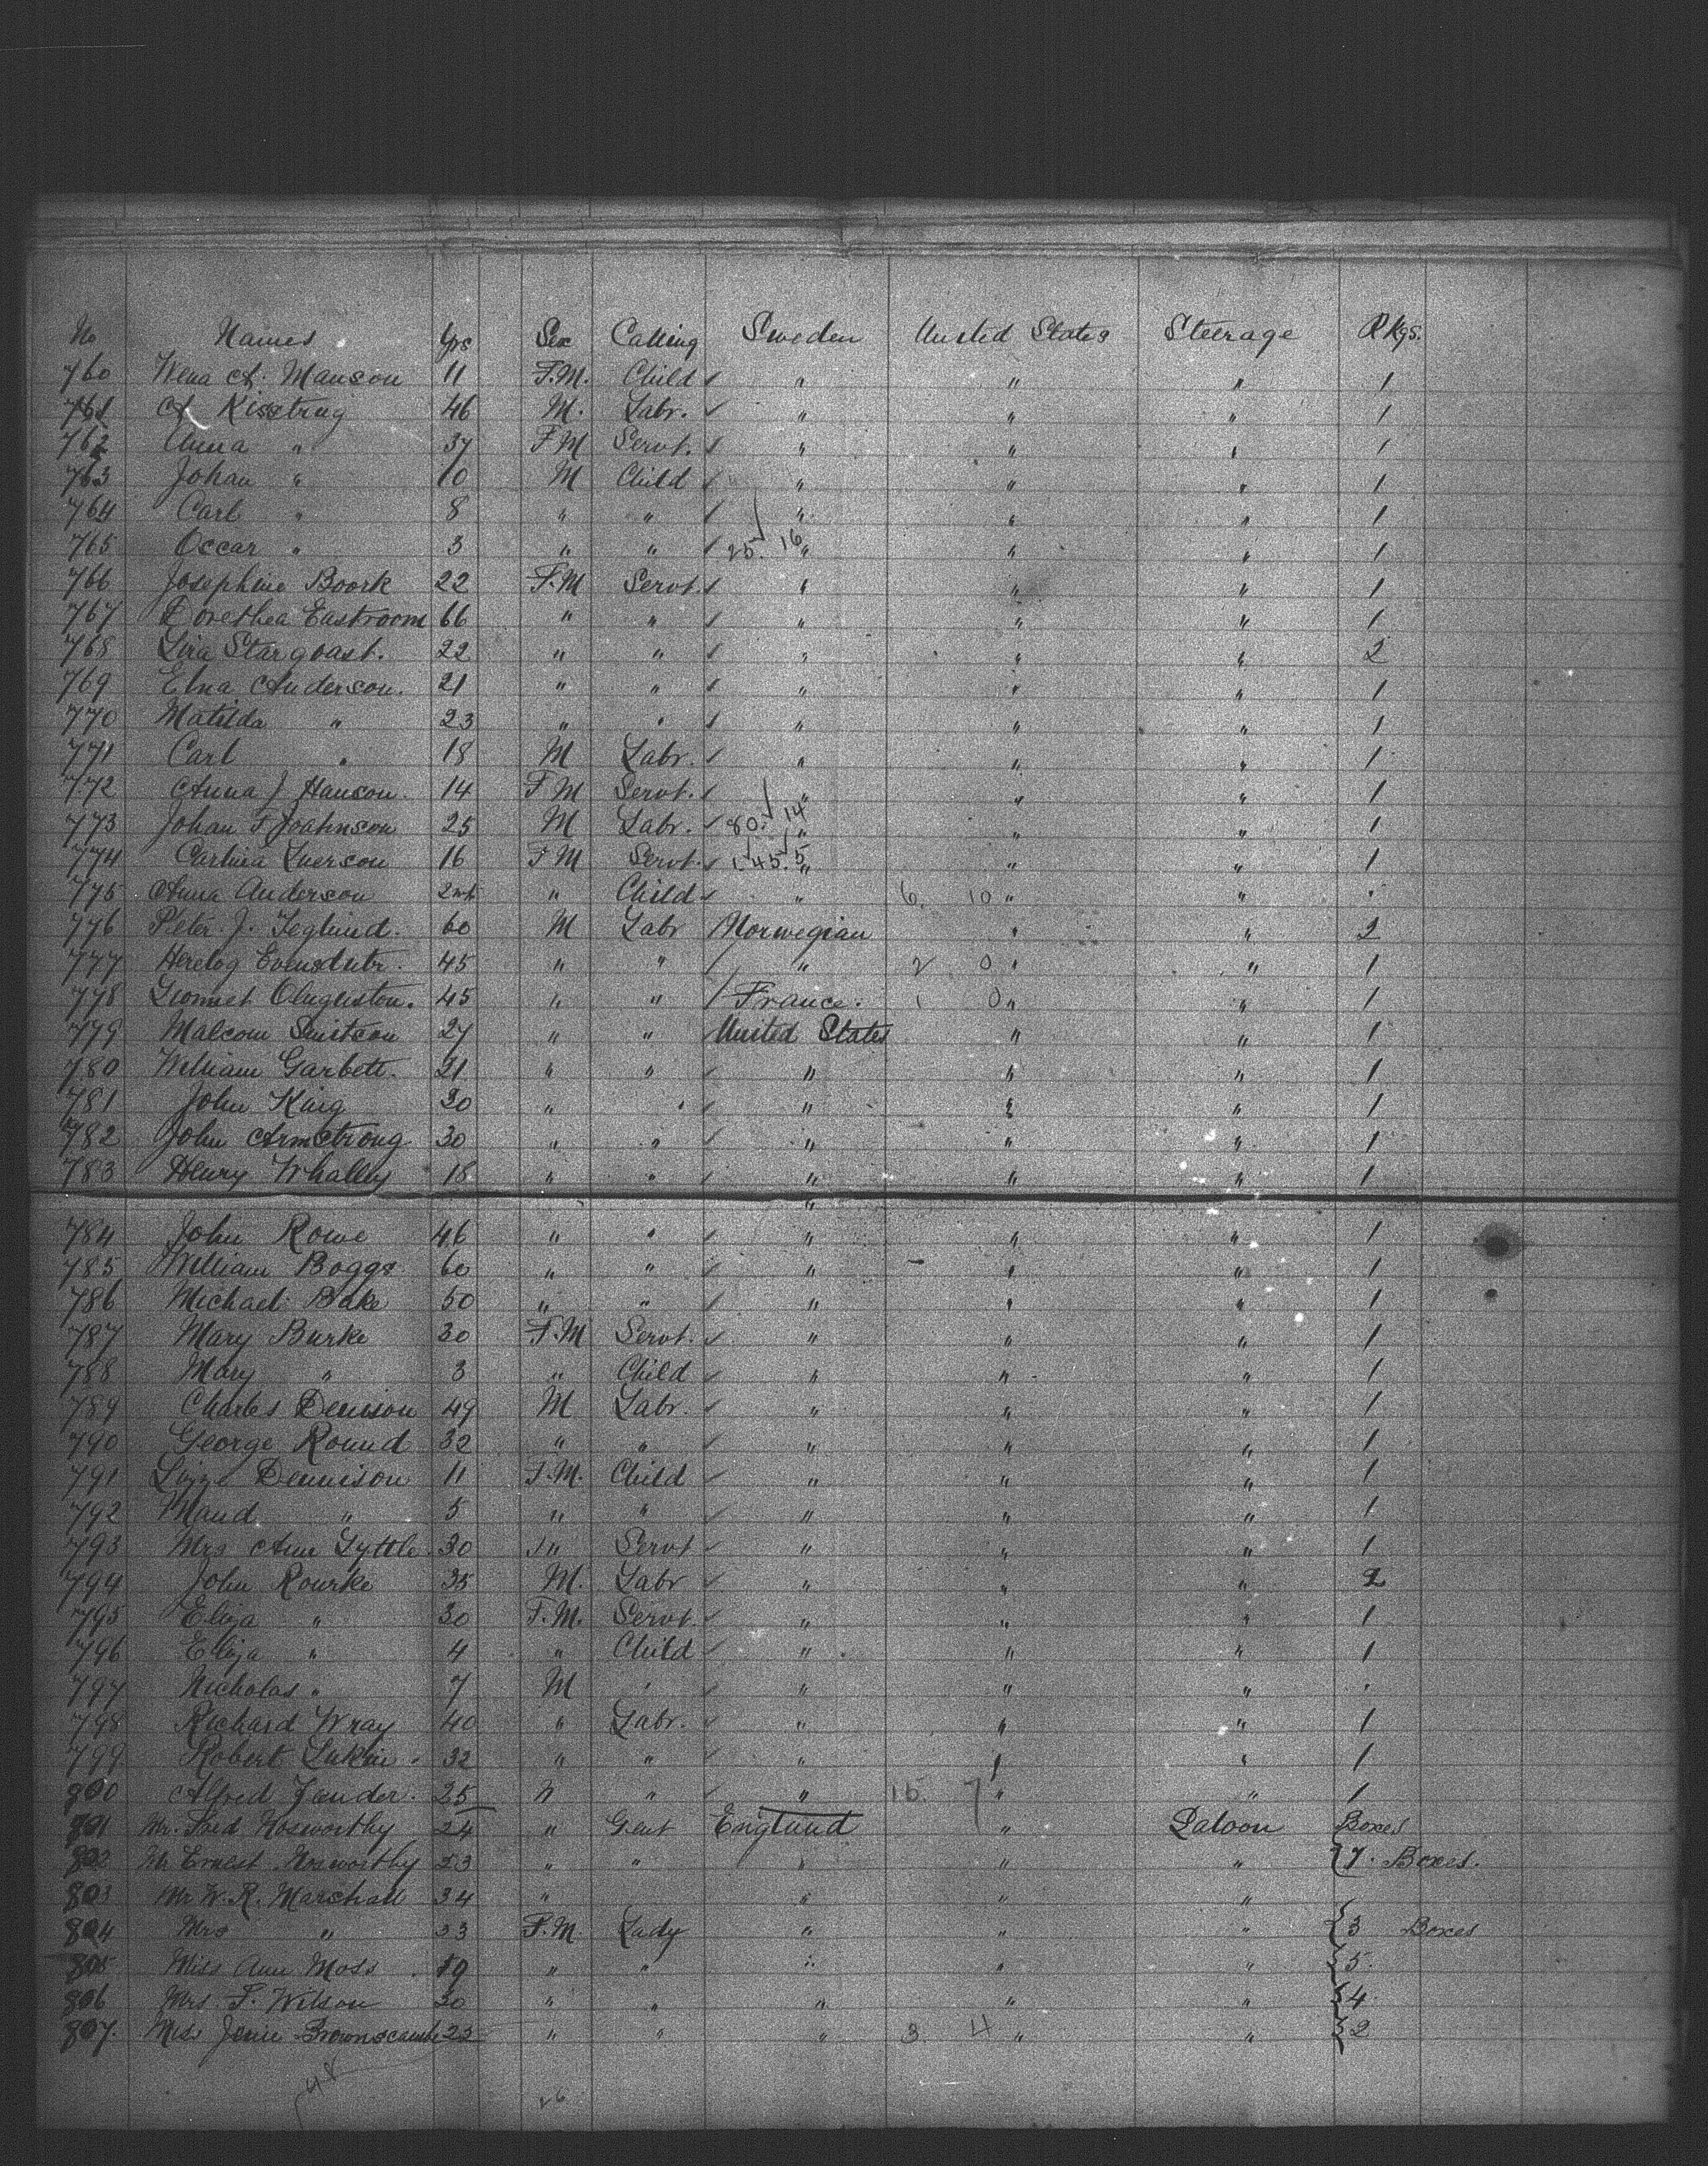 No Names Yrs Sex Calling Sweden United States Steerage Pkgs.
760 Wena A. Manson 11 F.M. Child " " " 1
761 A Kisstrug 46 M. Labr. " " " 1
762 Anna " 37 F M Servt. " " " 1
763 Johan " 10 M Child " " " 1
764 Carl " 8 " " " " " 1
765 Occar " 3 " " 25. 16 " " " 1
766 Josephine Boork 22 F.M Servt. " " " 1
767 Dorethea Eastroom 66 " " " " " 1
768 Lira Stargoast. 22 " " " " " 2
769 Elna Anderson. 21 " " " " " 1
770 Matilda " 23 " " " " " 1
771 Carl " 18 M Labr. " " " 1
772 Anna J Hanson. 14 F M Servt. " " " 1
773 Johan F Joahnson 25 M Labr. 80. 14 " " " 1
774 Carlnia Luerson 16 F M Servt. 1 45. 5 " " " 1
775 Anna Anderson " Child " 6. 10 " "
776 Peter. J. Teglund. 60 M Labr Norwegian " " 2
777 45 " " " 2 0 " " 1
778 45 " " France. 1 0 " " 1
779 Malcom 27 " " United States " " 1
780 William Garbett. 21 " " " " " 1
781 John Kaig 30 " " " " " 1
782 John Armstrong 30 " " " " " 1
783 Henry Whalley 18 " " " " " 1
784 John Rowe 46 " " " " " 1
785 William Boggs 60 " " " " " 1
786 Michael Bake 50 " " " " " 1
787 Mary Burke 30 F.M Servt. " " " 1
788 Mary " 3 " Child " " " 1
789 Charles Denison 49 M Labr. " " " 1
790 George Round 32 " " " " " 1
791 Lizze Dennison 11 F.M. Child " " " 1
792 Maud " 5 " " " " " 1
793 Mrs Ann Lyttle 30 " Servt " " " 1
794 John Rourke 35 M. Labr " " " 2
795 Eliza " 30 F.M. Servt. " " " 1
796 Eliza " 4 " Child " " " 1
797 Nicholas " 7 M " " " " "
798 Richard Wray 40 " Labr. " " " 1
799 Robert Lukin. 32 " " " " " 1
800 Alfred 25 " " " 16. 7 " " 1
801 Mr. Hosworthy 24 " Gent England " Saloon Boxes
802 Mr Ernest Hosworthy 23 " " " " " 7. Boxes.
803 Mr W. R. Marshall 34 " " " "
804 Mrs " 33 F.M. Lady " " " 3 Boxes
805 Miss Ann Moss. 19 " " " " " 5.
806 Mrs. F. Wilson 30 " " " " " 4.
807. Miss Jenie Brownscombe 23 " " " 3. 4 " " 2
48
26